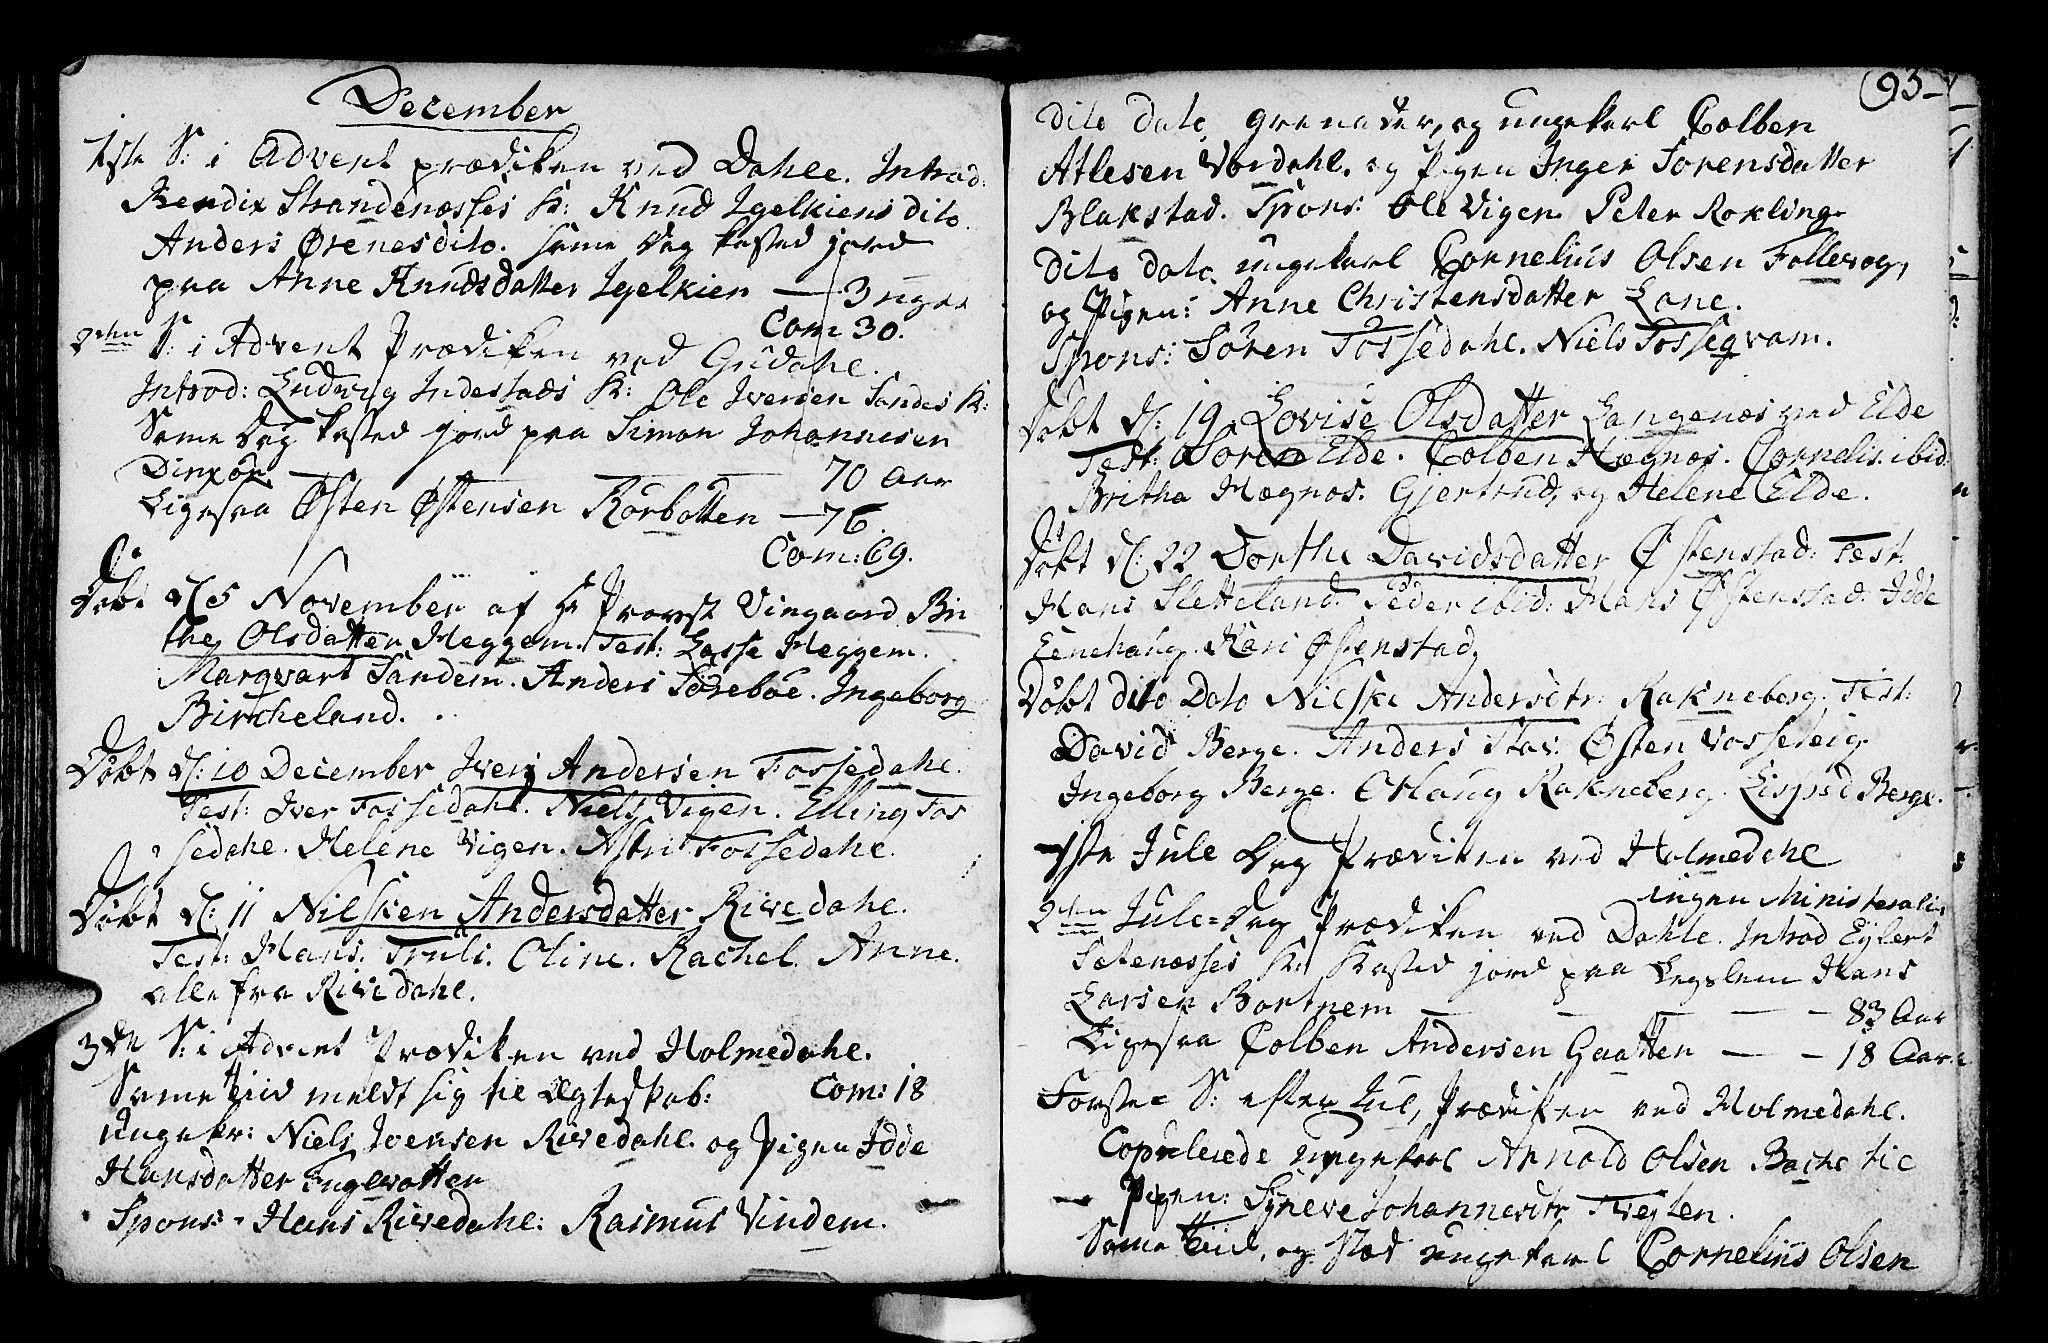 December
1ste S: i Advent prædiken ved Dahle. Introd:
Bendix Strandenæsses K: Knud Igelkiens dito
Anders Ørenes dito. same Dag kasted jord
paa Anne Knudsdatter Igelkien — 3 uger
Com 30.
2den S: i Advent Prædiken ved Gudahl.
Introd: Ludwig Indestads K: Ole Iversen Sandes K:
Same Dag kasted jord paa Simon Johannesen
Dinxör — 70 Aar
Ligesaa Østen Østensen Rörbotten — 76.
Com: 69.
Döbt d: 5 November af Hr Provst Vingaard Bri
the Olsdatter Heggem. Test: Lasse Heggem.
Marqvart Sandem. Anders Söreböe. Ingeborg
Bircheland.
Döbt d: 10 December Iver Andersen Fossedahl.
Test: Iver Fossedahl. Niels Vigen. Elling Fos
sedahl. Helene Vigen. Astri Fossedahl.
Döbt d: 11 Nilsken Andersdatter Rivedahl.
Test: Hans. Truls. Oline. Rachel. Anne.
alle fra Rivedahl.
3de S: i Advent Prædiken ved Holmedahl.
Same Tiid meldt sig til Ægteskab: Com: 18
Ungekr: Niels Iversen Rivedahl. og Pigen Idde
Hansdatter Fuglevatten
Spons: Hans Rivedahl: Rasmus Vindem.
93
dito dato grenader, og ungekarl Colben
Atlesen Vordahl. og Pigen Inger Sorensdatter
Blakstad. Spons: Ole Vigen Peter Rokling
dito dato ungekarl Cornelius Olsen Follevog,
og Pigen: Anne Christensdatter Lone.
Spons: Sören Fossedahl. Niels Fosseqvam.
Döbt d: 19 Lovise Olsdatter Langenæs ved Elde
Test: Soren Elde. Colben Hægnos. Cornelis ibid:
Britha Hægnos. Gjertrud, og Helene Elde.
Döbt d: 22 Dorthe Davidsdatter Østenstad: Test:
Hans Sletteland. Peder ibid: Hans Østenstad. Idde
Eenehaug. Kari Østenstad,
Döbt dito Dato Nilske Andersdtr: Rakneberg. Test:
David Berge. Anders Stav. Østen Vasseleig
Ingeborg Berge. Rakneberg. Berge.
1ste Jule Dag Prædiken ved Holmedahl
ingen Ministerali:
2den Jule-Dag Prædiken ved Dahle. Introd Eylert
Setenæsses K: Kasted jord paa Legslem Hans
Larsen Bortnem — 83 Aar
Ligesaa Colben Andersen Gaatten — 18 Aar
Förste S: efter Jul, Prædiken ved Holmedahl.
Copulerede ungekarl Arnold Olsen Bache til
Pigen: Syneve Johannesdtr Tveyten.
Same Tiid, og Stæd ungekarl Cornelius Olsen